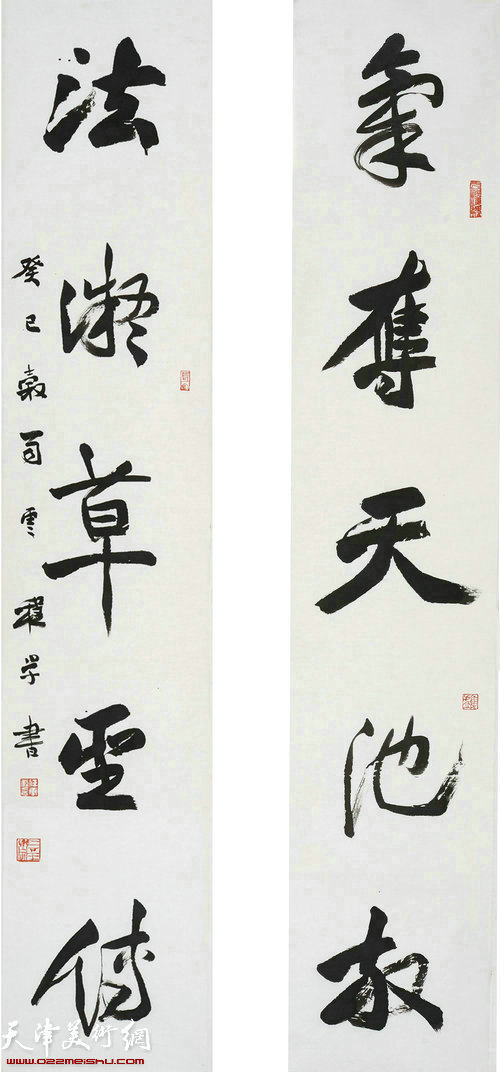 氣奪天池放
法凝草聖傳
癸巳穀雨雲 學書
天津美術網
www.022meishu.com